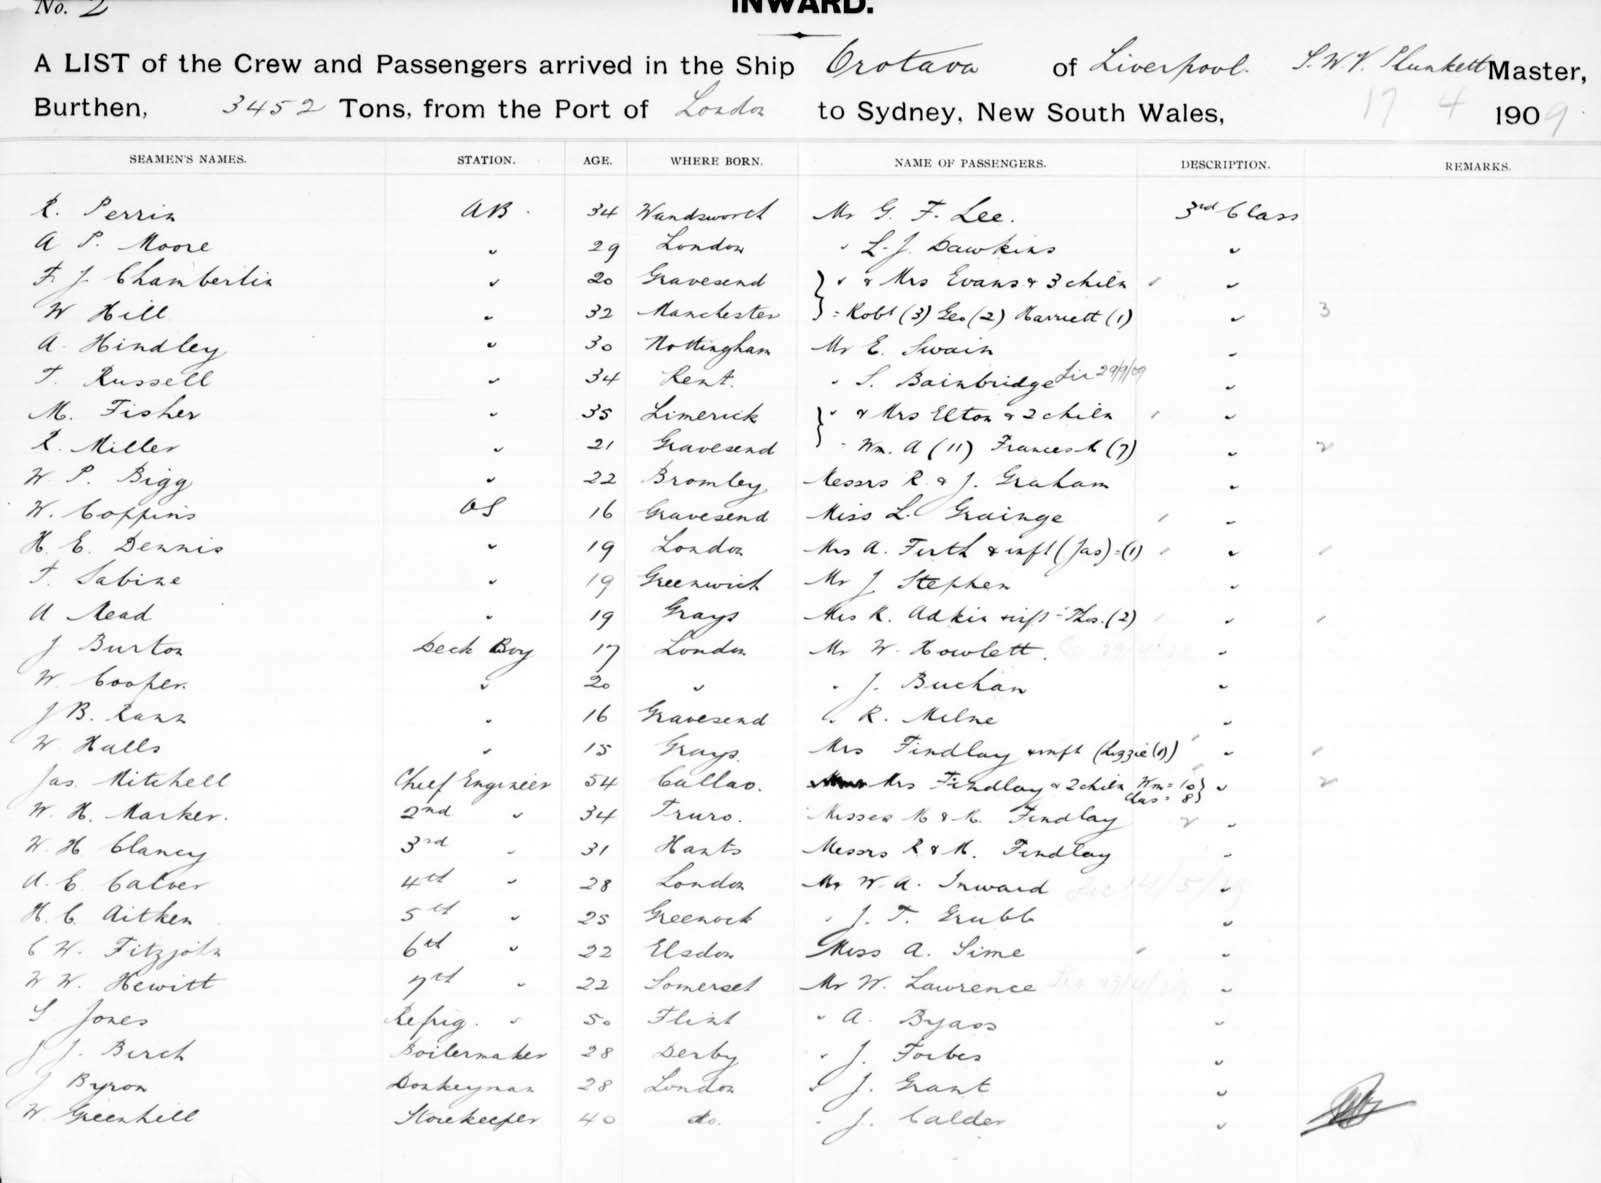 No. 2 INWARD.
A LIST of the Crew and Passengers arrived in the Ship Orotava of Liverpool. S.W.V. Plunkett Master,
Burthen, 3452 Tons, from the Port of London to Sydney, New South Wales, 17 4 1909.
SEAMEN'S NAMES. STATION. AGE. WHERE BORN. NAME OF PASSENGERS. DESCRIPTION. REMARKS.
R. Perrin AB. 34 Wandsworth Mr G. F. Lee. 3rd Class
A P. Moore " 29 London " L. J. Dawkins "
F. J. Chamberlin " 20 Gravesend } " & Mrs Evans & 3 chiln "
W Hill " 32 Manchester } = Robt (3) Geo (2) Harriett (1) " 3
A. Hindley " 30 Nottingham Mr E. Swain "
T. Russell " 34 Kent. " S. Bainbridge "
M. Fisher " 35 Limerick } " & Mrs Elton & 2 chiln "
R. Miller " 21 Gravesend } " Wm. A (11) Frances (7) " 2
W. P. Bigg " 22 Bromley Messrs R. & J. Graham "
W. Coppins OS 16 Gravesend Miss L. Grainge "
H. E. Dennis " 19 London Mrs A. Firth & inft (Jas) = (1) "
T. Sabine " 19 Greenwich Mr J Stephen "
A Mead " 19 Grays Mrs K. Adkin & inft = Thos. (2) "
J Burton Deck Boy 17 London Mr W. Howlett. "
W. Cooper. " 20 " " J. Buchan "
J B. Rann " 16 Gravesend " R. Milne "
W Halls " 15 Grays. Mrs Findlay & inft (Lizzie (1)) "
Jas. Mitchell Chief Engineer 54 Callao. Mrs Findlay & 2 chiln Wm = 10 } "  2
Chas = 8 }
W. H. Marker. 2nd " 34 Truro. Misses M & M. Findlay 2 "
W. H Clancy 3rd " 31 Hants Messrs R & H. Findlay "
A. E. Calver 4th " 28 London Mr W. A. Inward "
H. C. Aitken 5th " 25 Greenock " J. T. Grubb "
C H. Fitzjohn 6th " 22 Elsdon Miss A. Sime "
W W. Hewitt 7th " 22 Somerset Mr W. Lawrence "
S. Jones Refrig. " 50 Flint " A. Byass "
J J. Birch Boilermaker 28 Derby " J. Forbes "
J Byron Donkeyman 28 London " J. Grant "
W. Greenhill Storekeeper 40 do. " J. Calder "